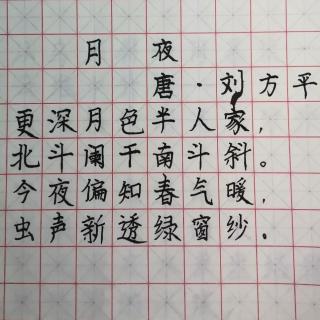 月 夜
唐·刘方平
更深月色半人家，
北斗阑干南斗斜。
今夜偏知春气暖，
虫声新透绿窗纱.